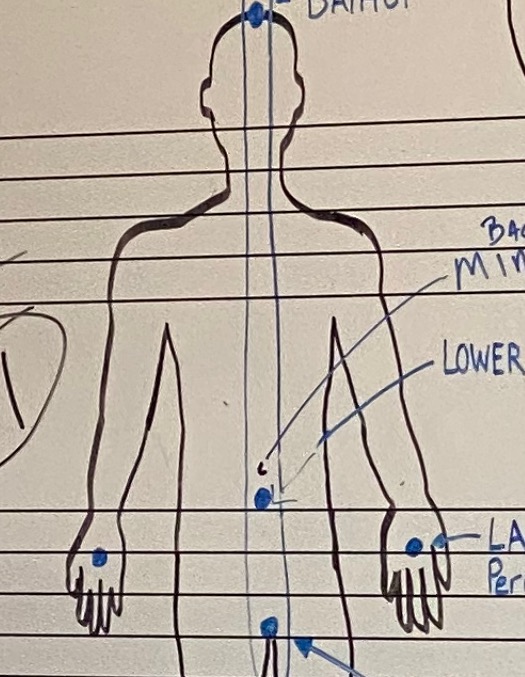 BAIHUI
BAC
MIN
LOWER
LA
Per